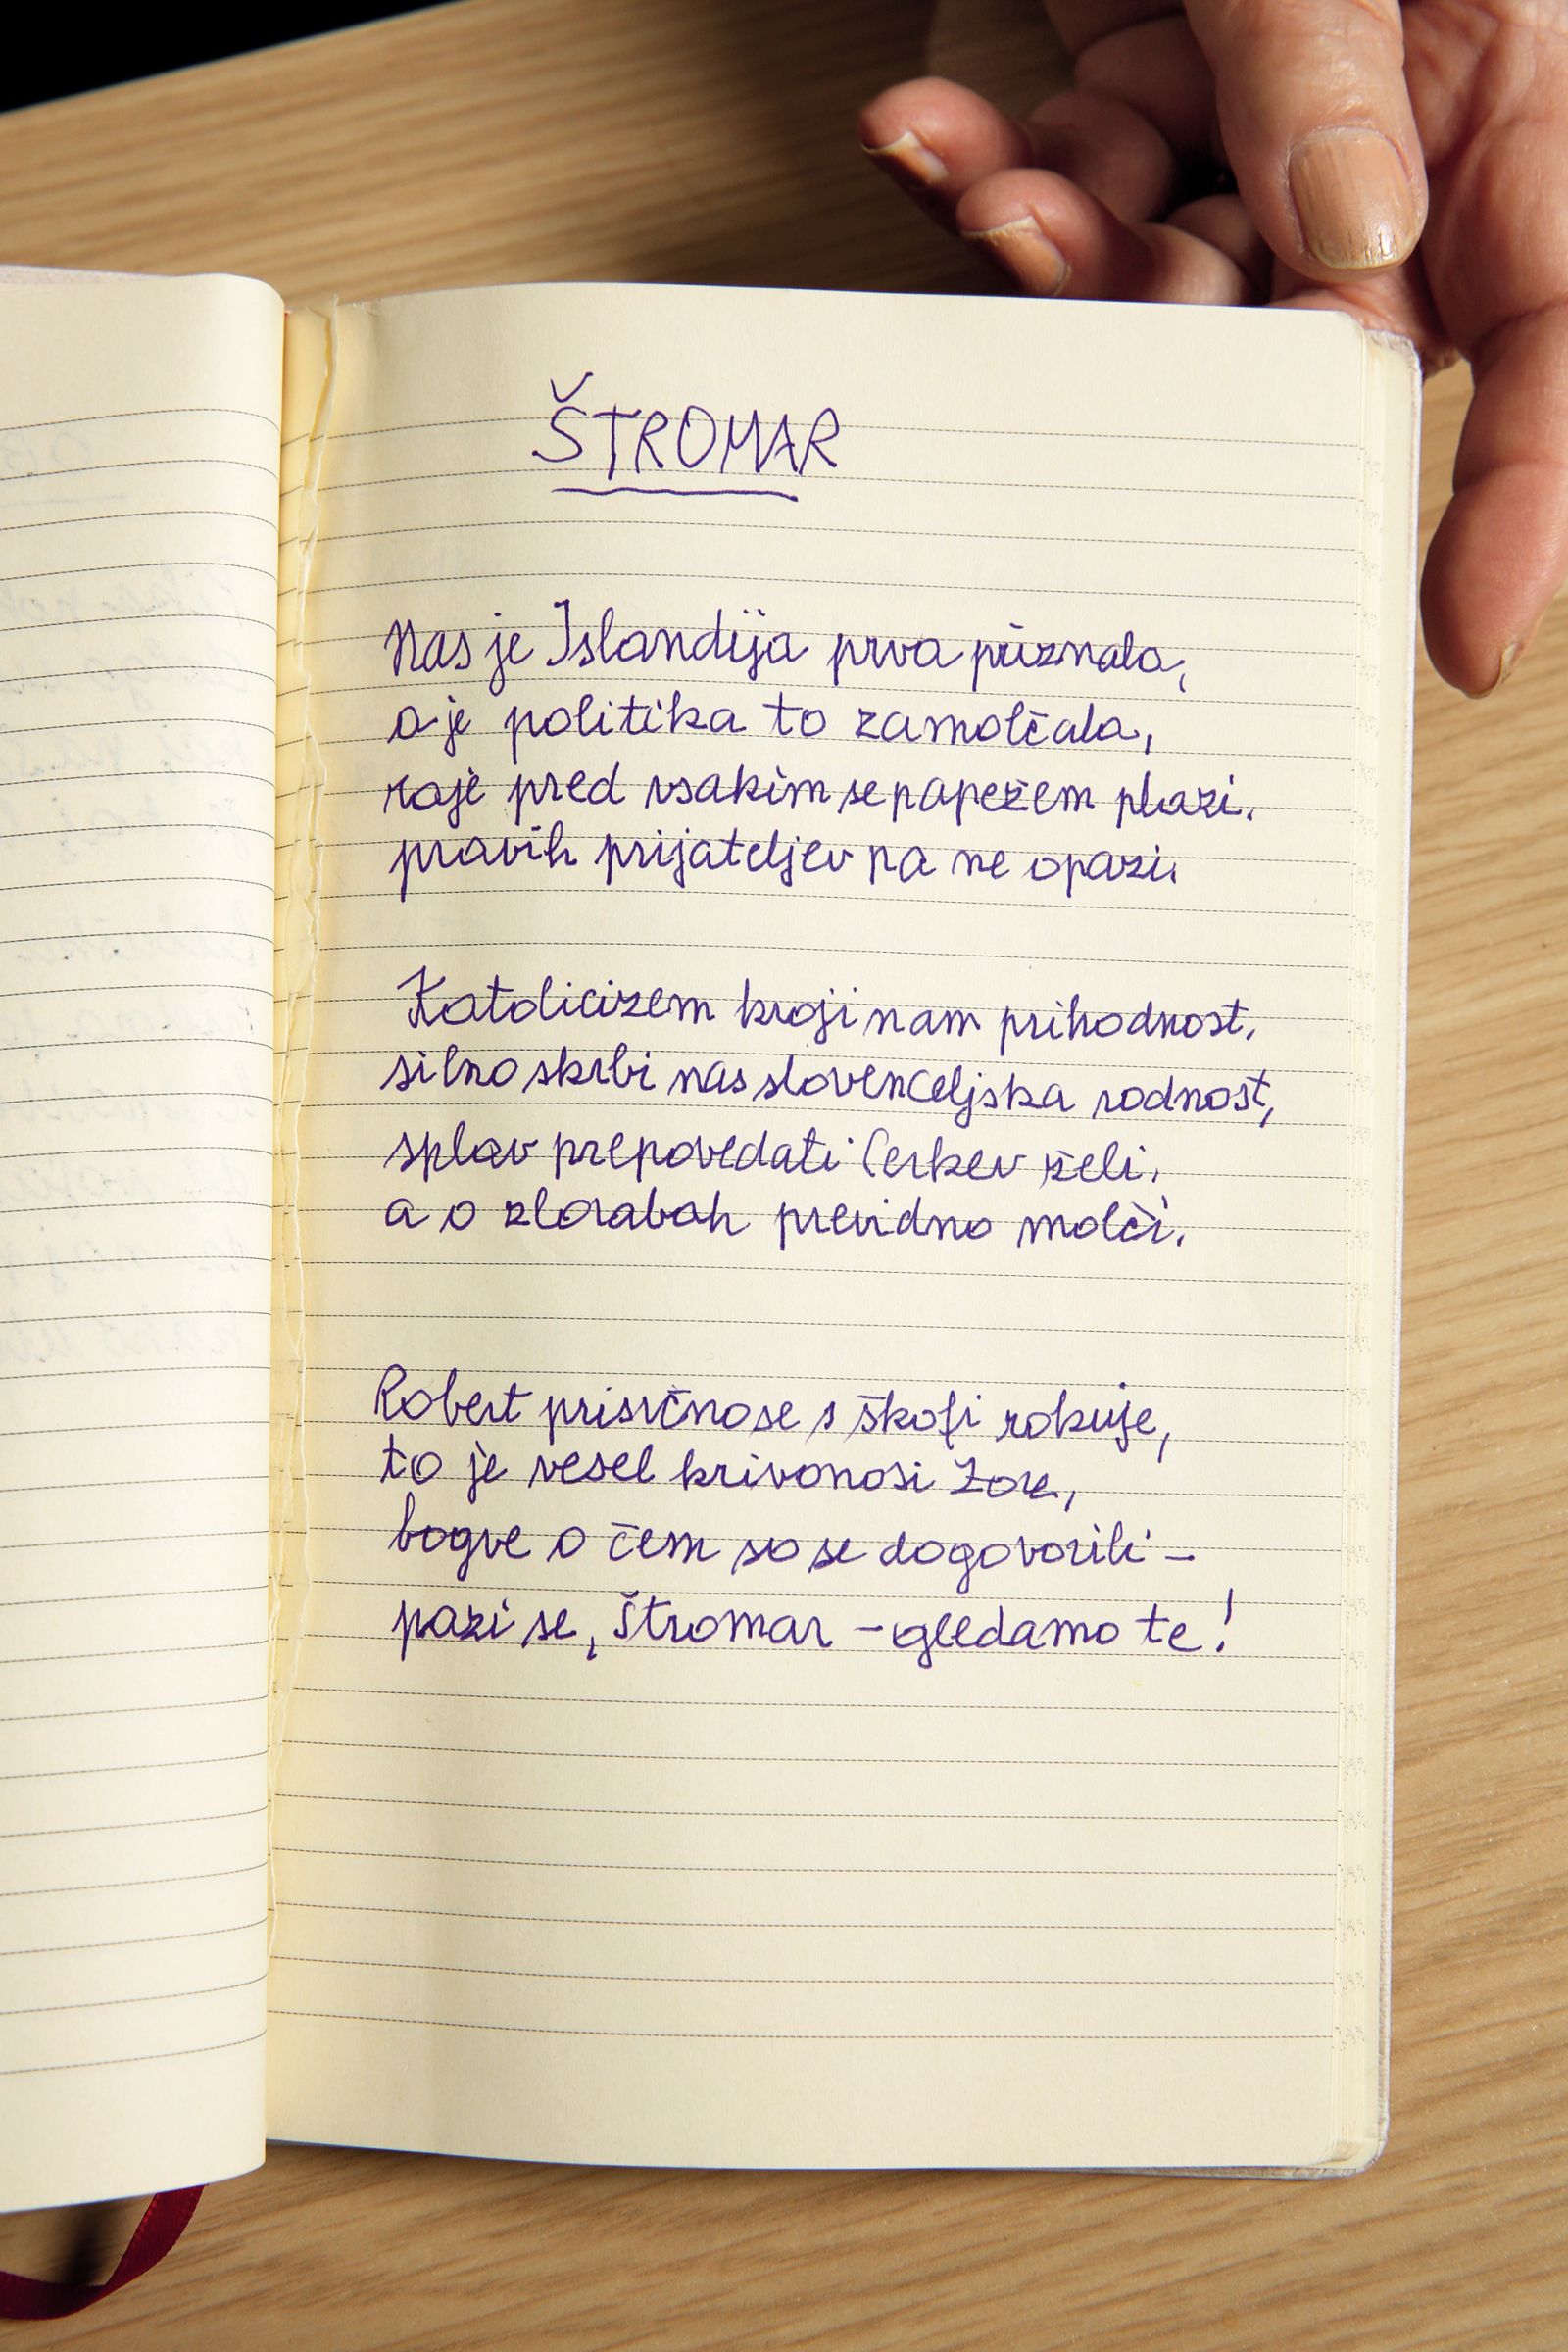 ŠTROMAR
Nas je Islandija prva priznala,
a je politika to zamolčala,
raje pred vsakim se papežem plazi.
pravih prijateljev pa ne opazi.
Katolicizem kroji nam prihodnost,
silno skrbi nas slovenceljska rodnost,
splav prepovedati Cerkev želi,
a o zlorabah previdno molči.
Robert prisrčno se s škofi rokuje,
to je vesel krivonosi Zore,
bogve o čem so se dogovorili –
pazi se, štromar – gledamo te!